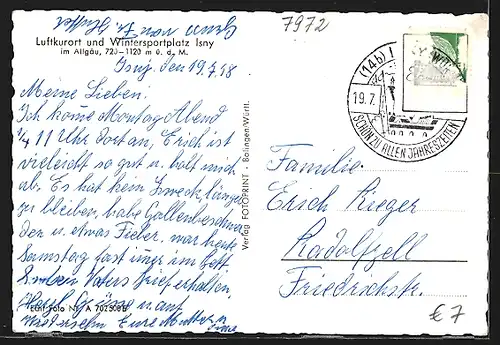 7972
Luftkurort und Wintersportplatz Isny
im Allgäu, 720–1120 m ü. d. M.
Isny, den 19.7.58
Meine Lieben!
Ich komme Montag Abend
1/4 11 Uhr dort an, Erich ist
vieleicht so gut u. holt mich
ab. Es hat kein Zweck länger
zu bleiben, habe Gallenbeschwer
den u. etwas Fieber, war heute
Samstag fast immer im Bett
Vaters Brief erhalten,
Herzl. Grüsse u. auf
Wiedersehn Eure Mutter u.
Echt Foto Nr. A
Verlag FOTOPRINT - Balingen/Württ.
(14b) I
19.7.
SCHÖN ZU ALLEN JAHRESZEITEN
Familie
Erich Rieger
Radolfzell
Friedrichstr.
€ 7